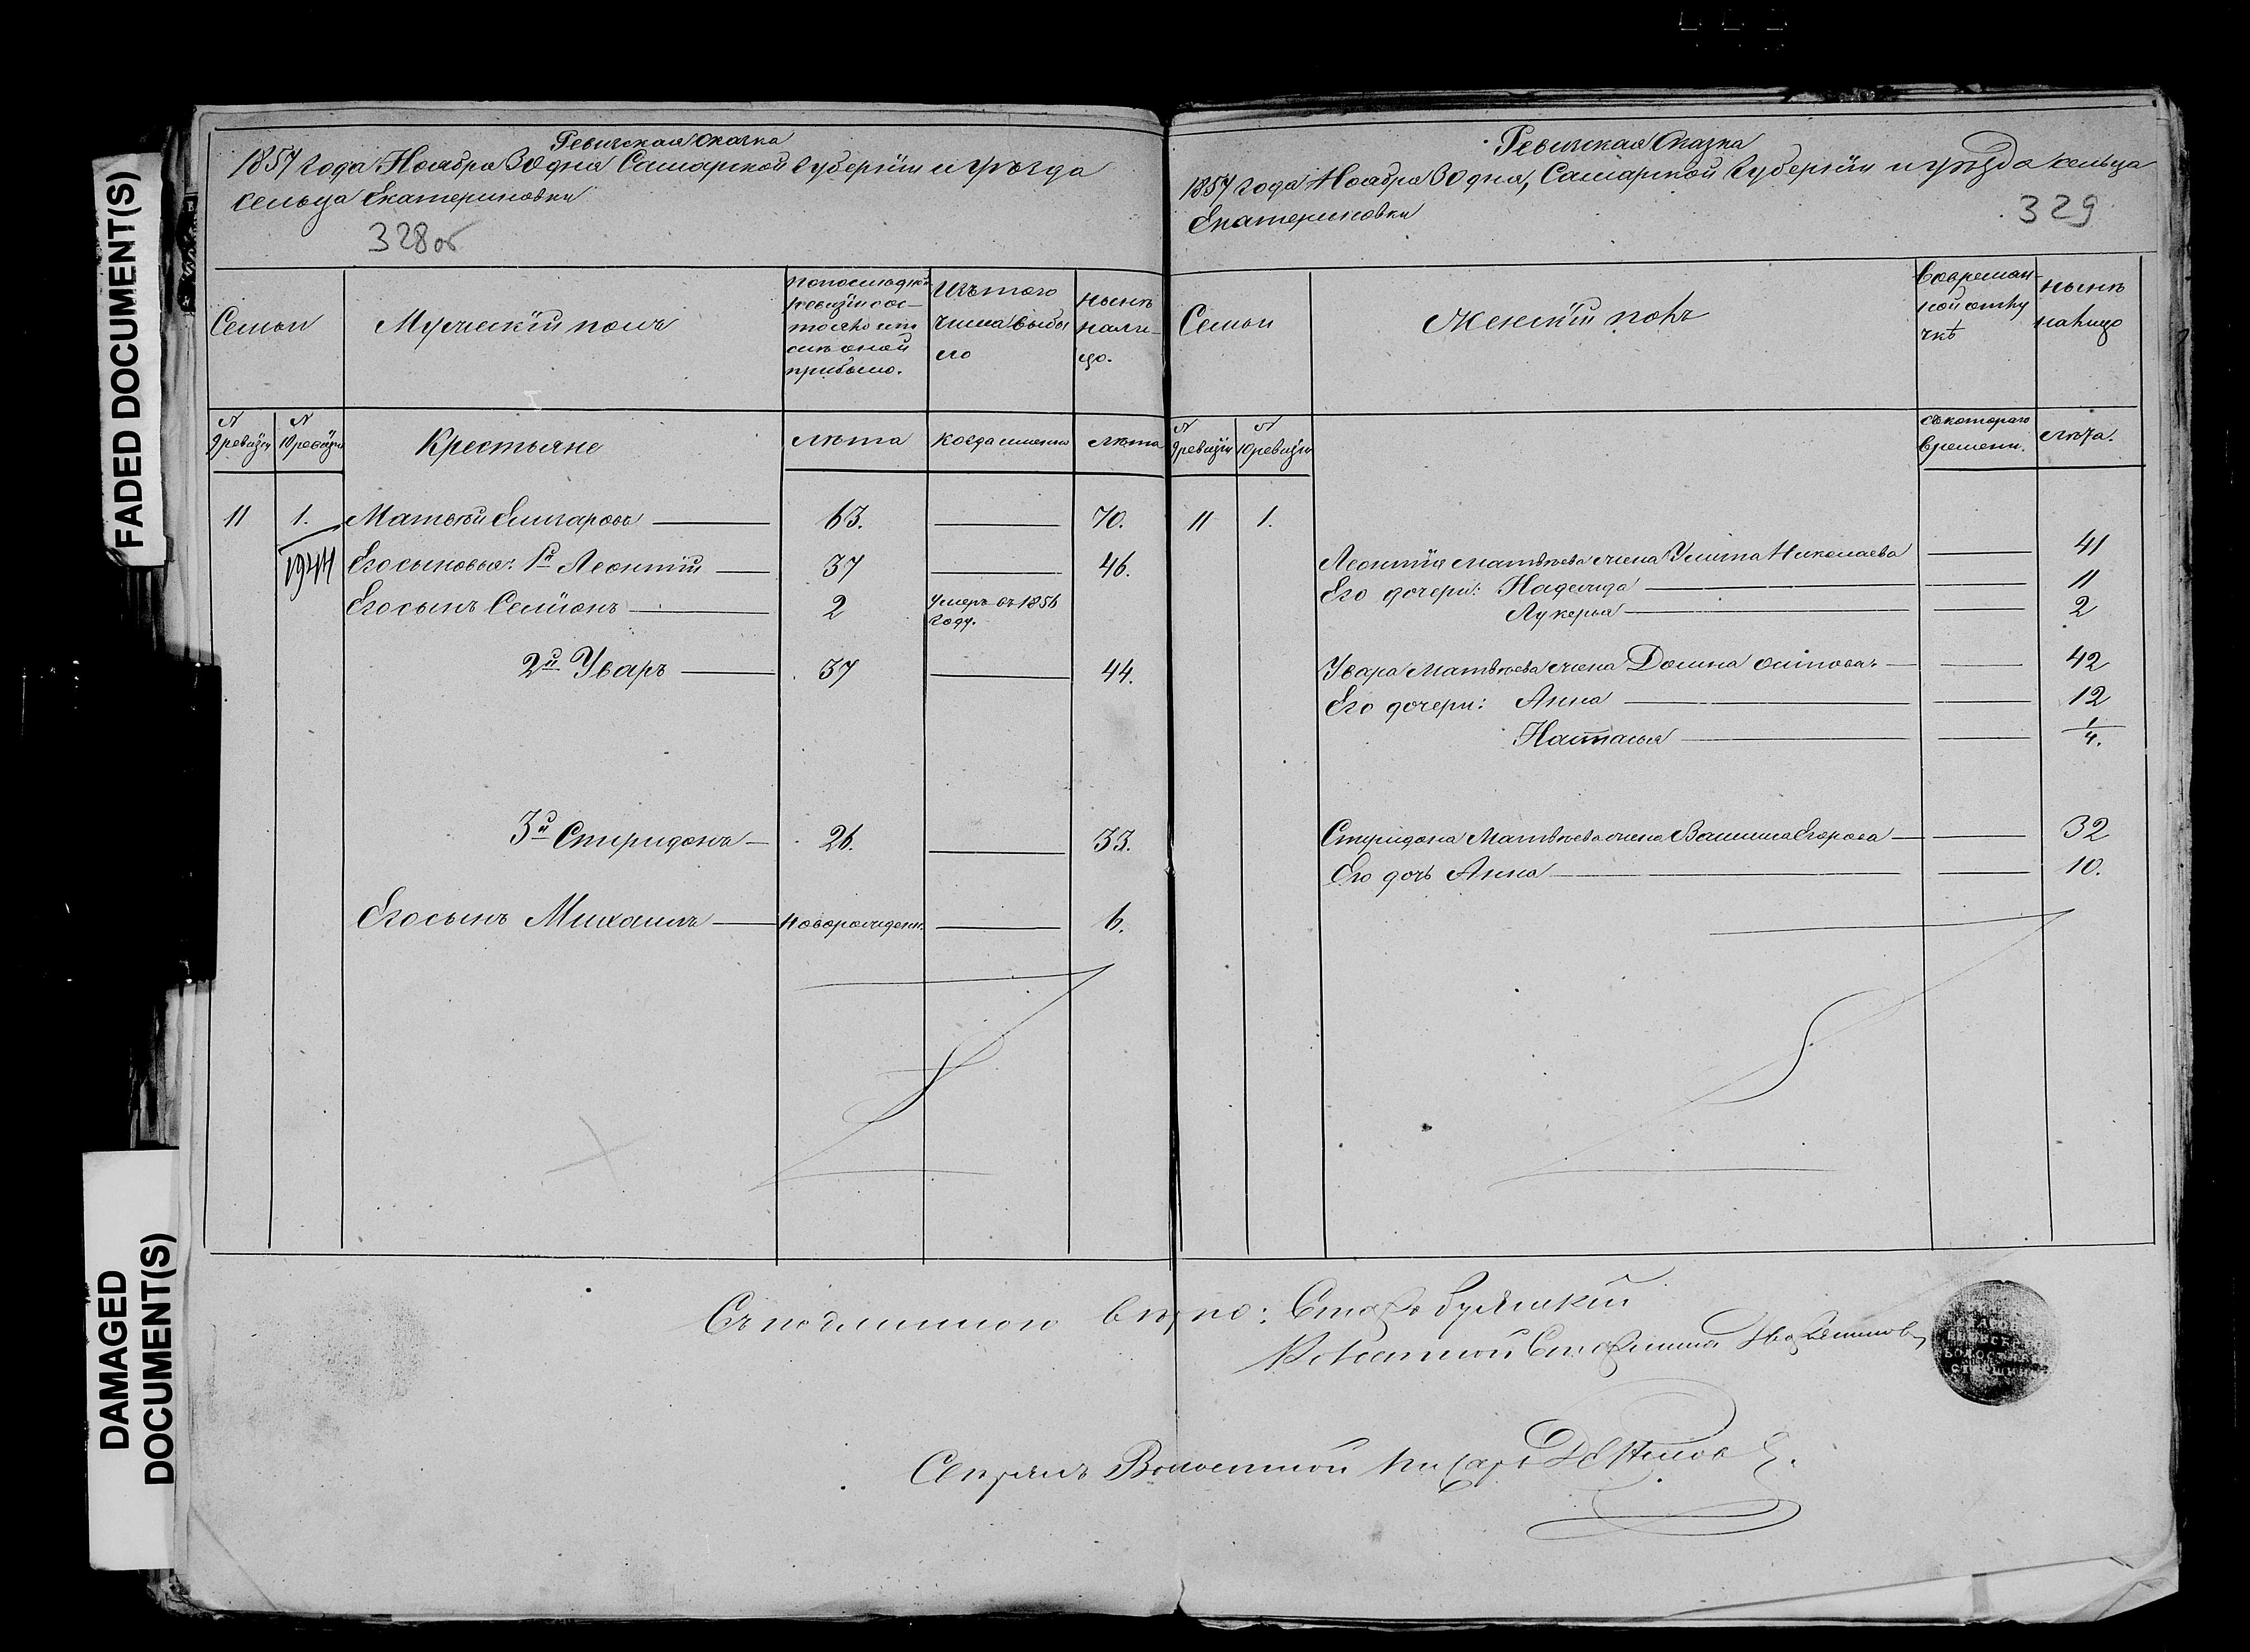 FADED DOCUMENT(S)
DAMAGED DOCUMENT(S)
Ревизская сказка
1857 года Ноября 30 дня Самарской губернiи и уѣзда
сельца Екатериновки
328об
Семьи
Мужескiй полъ
По последней ревизiи состояло или после оной прибыло.
Изъ того числа выбыло
Нынѣ налицо.
№ 9 ревизiи
№ 10 ревизiи
Крестьяне
лѣта
когда именно
лѣта
11 1. Матвѣй 63. 70.
1944
Его сыновья: 1й Леонтiй 37 46.
Его сынъ Семiонъ 2 Умеръ въ 1856 году.
2й Уваръ 37 44.
3й Спиридонъ 26. 33.
Его сынъ Михаилъ новорожден. 6.
Ревизская Сказка
1857 года Ноября 30 дня, Самарской губернiи и уѣзда сельца
Екатериновки
329
Семьи
Женскiй полъ
Во временной отлучкѣ
Нынѣ налицо
№ 9 ревизiи
№ 10 ревизiи
Съ котораго времени.
Лѣта.
11 1.
Леонтiя Матвѣева жена Улита Николаева 41
Его дочери: Надежда 11
Лукерья 2
Увара Матвѣева жена Домна Осипова 42
Его дочери: Анна 12
Настасья 1/4.
Спиридона Матвѣева жена Егорова 32
Его дочь Анна 10.
Съ подлинною вѣрно:
Волостной Старшина
Волостной Писарь